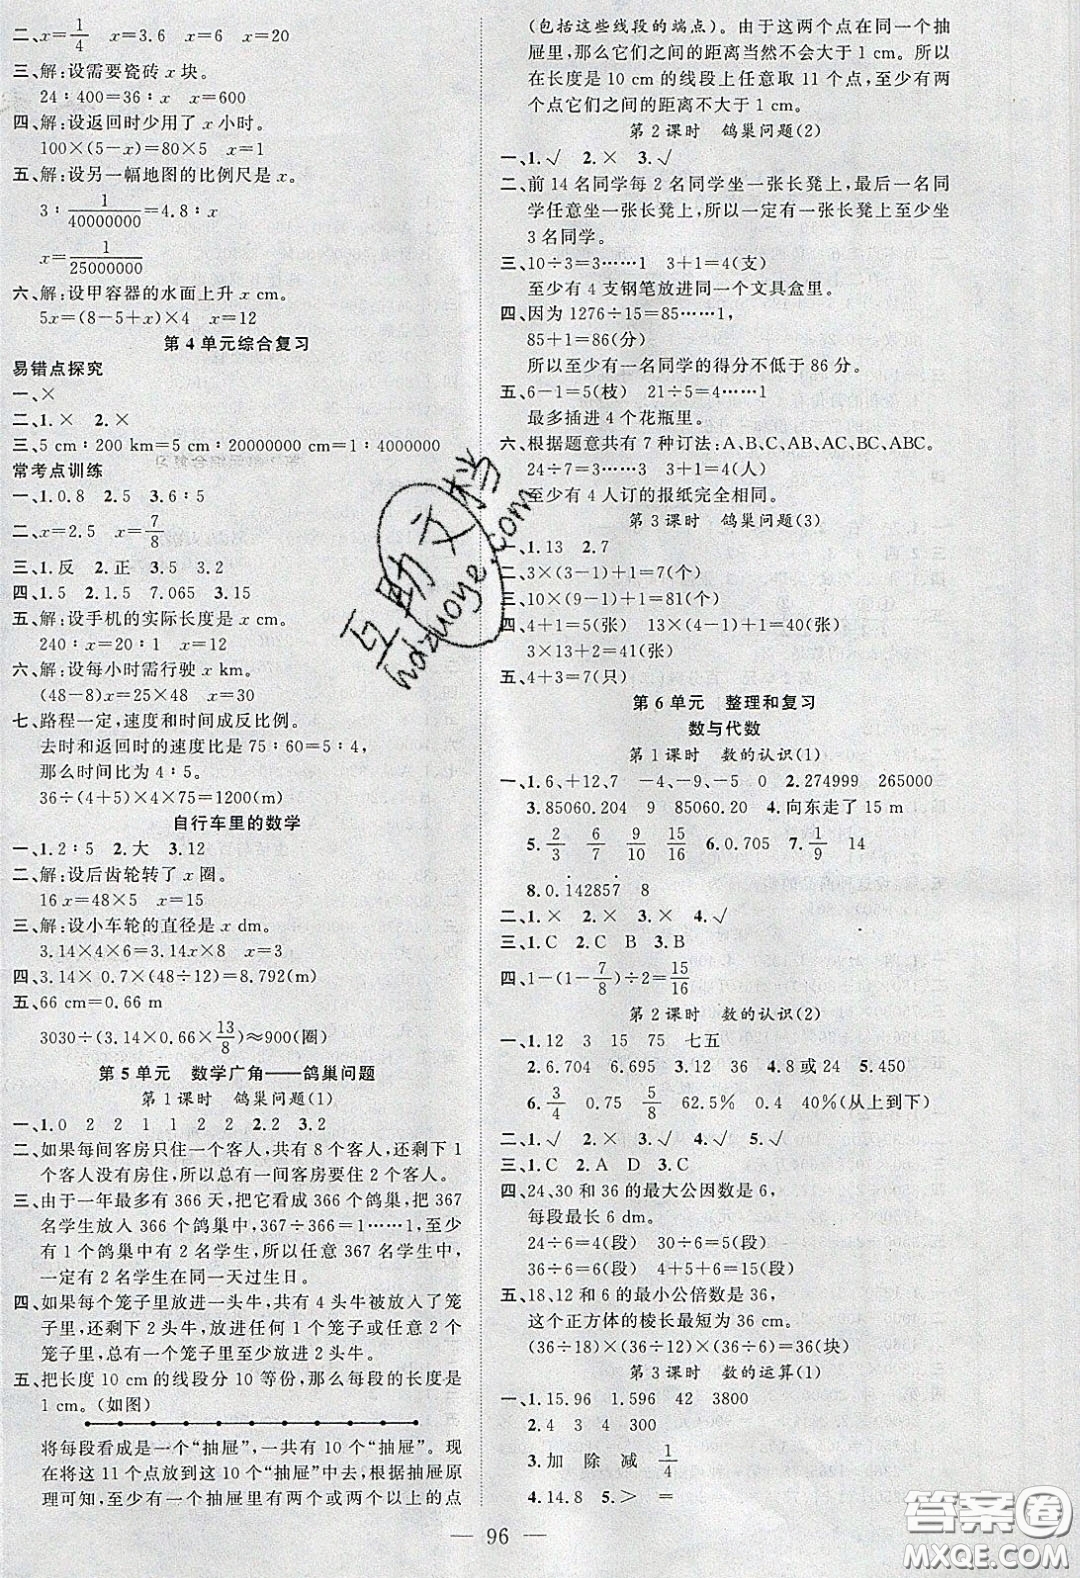 二、x=1/4　x=3.6　x=6　x=20
三、解:设需要瓷砖 x 块。
24∶400=36∶x　x=600
四、解:设返回时少用了 x 小时。
100×(5-x)=80×5　x=1
五、解:设另一幅地图的比例尺是 x。
3∶1/40000000=4.8∶x
x=1/25000000
六、解:设甲容器的水面上升 x cm。
5x=(8-5+x)×4　x=12
第 4 单元综合复习
易错点探究
一、×
二、1.×　2.×
三、5 cm∶200 km=5 cm∶20000000 cm=1∶4000000
常考点训练
一、1.0.8　2.5　3.6∶5
二、x=2.5　x=7/8
三、1.反　2.正　3.5　3.2
四、1.5　1.5　7.065　3.15
五、解:设手机的实际长度是 x cm。
240∶x=20∶1　x=12
六、解:设每小时需行驶 x km。
(48-8)x=25×48　x=30
七、路程一定,速度和时间成反比例。
去时和返回时的速度比是 75∶60=5∶4,
那么时间比为 4∶5。
36÷(4+5)×4×75=1200(m)
自行车里的数学
一、1.2∶5　2.大　3.12
二、解:设后齿轮转了 x 圈。
16x=48×5　x=15
三、解:设小车轮的直径是 x dm。
3.14×4×6=3.14x×8　x=3
四、3.14×0.7×(48÷12)=8.792(m)
五、66 cm=0.66 m
3030÷(3.14×0.66×13/8)≈900(圈)
第 5 单元　数学广角——鸽巢问题
第 1 课时　鸽巢问题(1)
一、1.0　2　2　1　1　2　2　2.2　3.2
二、如果每间客房只住一个客人,共有 8 个客人,还剩下 1
个客人没有房住,所以总有一间客房要住 2 个客人。
三、由于一年最多有 366 天,把它看成 366 个鸽巢,把 367
名学生放入 366 个鸽巢中,367÷366=1……1,至少
有 1 个鸽巢中有 2 名学生,所以任意 367 名学生中,
一定有 2 名学生在同一天过生日。
四、如果每个笼子里放进一头牛,共有 4 头牛被放入了笼
子里,还剩下 2 头牛,放进任何 1 个笼子或任意 2 个
笼子里,总有一个笼子里至少放进 2 头牛。
五、把长度 10 cm 的线段分 10 等份,那么每段的长度是
1 cm。(如图)
将每段看成是一个“抽屉”,一共有 10 个“抽屉”。现
在将这 11 个点放到这 10 个“抽屉”中去,根据抽屉原
理可知,至少有一个抽屉里有两个或两个以上的点
(包括这些线段的端点)。由于这两个点在同一个抽
屉里,那么它们之间的距离当然不会大于 1 cm。所以
在长度是 10 cm 的线段上任意取 11 个点,至少有两
个点它们之间的距离不大于 1 cm。
第 2 课时　鸽巢问题(2)
一、1.√　2.×　3.√
二、前 14 名同学每 2 名同学坐一张长凳上,最后一名同
学任意坐一张长凳上,所以一定有一张长凳上至少坐
3 名同学。
三、10÷3=3……1　3+1=4(支)
至少有 4 支钢笔放进同一个文具盒里。
四、因为 1276÷15=85……1,
85+1=86(分)
所以至少有一名同学的得分不低于 86 分。
五、6-1=5(枝)　21÷5=4……1
最多插进 4 个花瓶里。
六、根据题意共有 7 种订法:A、B、C、AB、AC、BC、ABC。
24÷7=3……3　3+1=4(人)
至少有 4 人订的报纸完全相同。
第 3 课时　鸽巢问题(3)
一、1.13　2.7
二、3×(3-1)+1=7(个)
三、10×(9-1)+1=81(个)
四、4+1=5(张)　13×(4-1)+1=40(张)
3×13+2=41(张)
五、4+3=7(只)
第 6 单元　整理和复习
数与代数
第 1 课时　数的认识(1)
一、1.6、+12、7　-4、-9、-5　0　2.274999　265000
3.85060.204　9　85060.20　4.向东走了 15 m
5.2/3　6/7　9/10　15/16　6.0.705　7.1/9　14
8.0.1̇42857̇　8
二、1.×　2.×　3.×　4.√
三、1.C　2.C　B　3.B
四、1-(1-7/8)÷2=15/16
第 2 课时　数的认识(2)
一、1.12　3　15　75　七五
2.6.704　6.7　3.12　72　4.8 或 24　5.450
6.3/4　0.75　5/8　62.5%　0.4　40%(从上到下)
二、1.√　2.×　3.√　4.√　5.√
三、1.C　2.A　D　3.C
四、24、30 和 36 的最大公因数是 6,
每段最长 6 dm。
24÷6=4(段)　30÷6=5(段)
36÷6=6(段)　4+5+6=15(段)
五、18、12 和 6 的最小公倍数是 36,
这个正方体的棱长最短为 36 cm。
(36÷18)×(36÷12)×(36÷6)=36(块)
第 3 课时　数的运算(1)
一、1.15.96　1.596　42　3800
2.4　3　4　300
3.加　除　减　1/4
4.14.8　5.>　=
96
互助文档
hdzuoye.com
答案圈
MXQE.COM